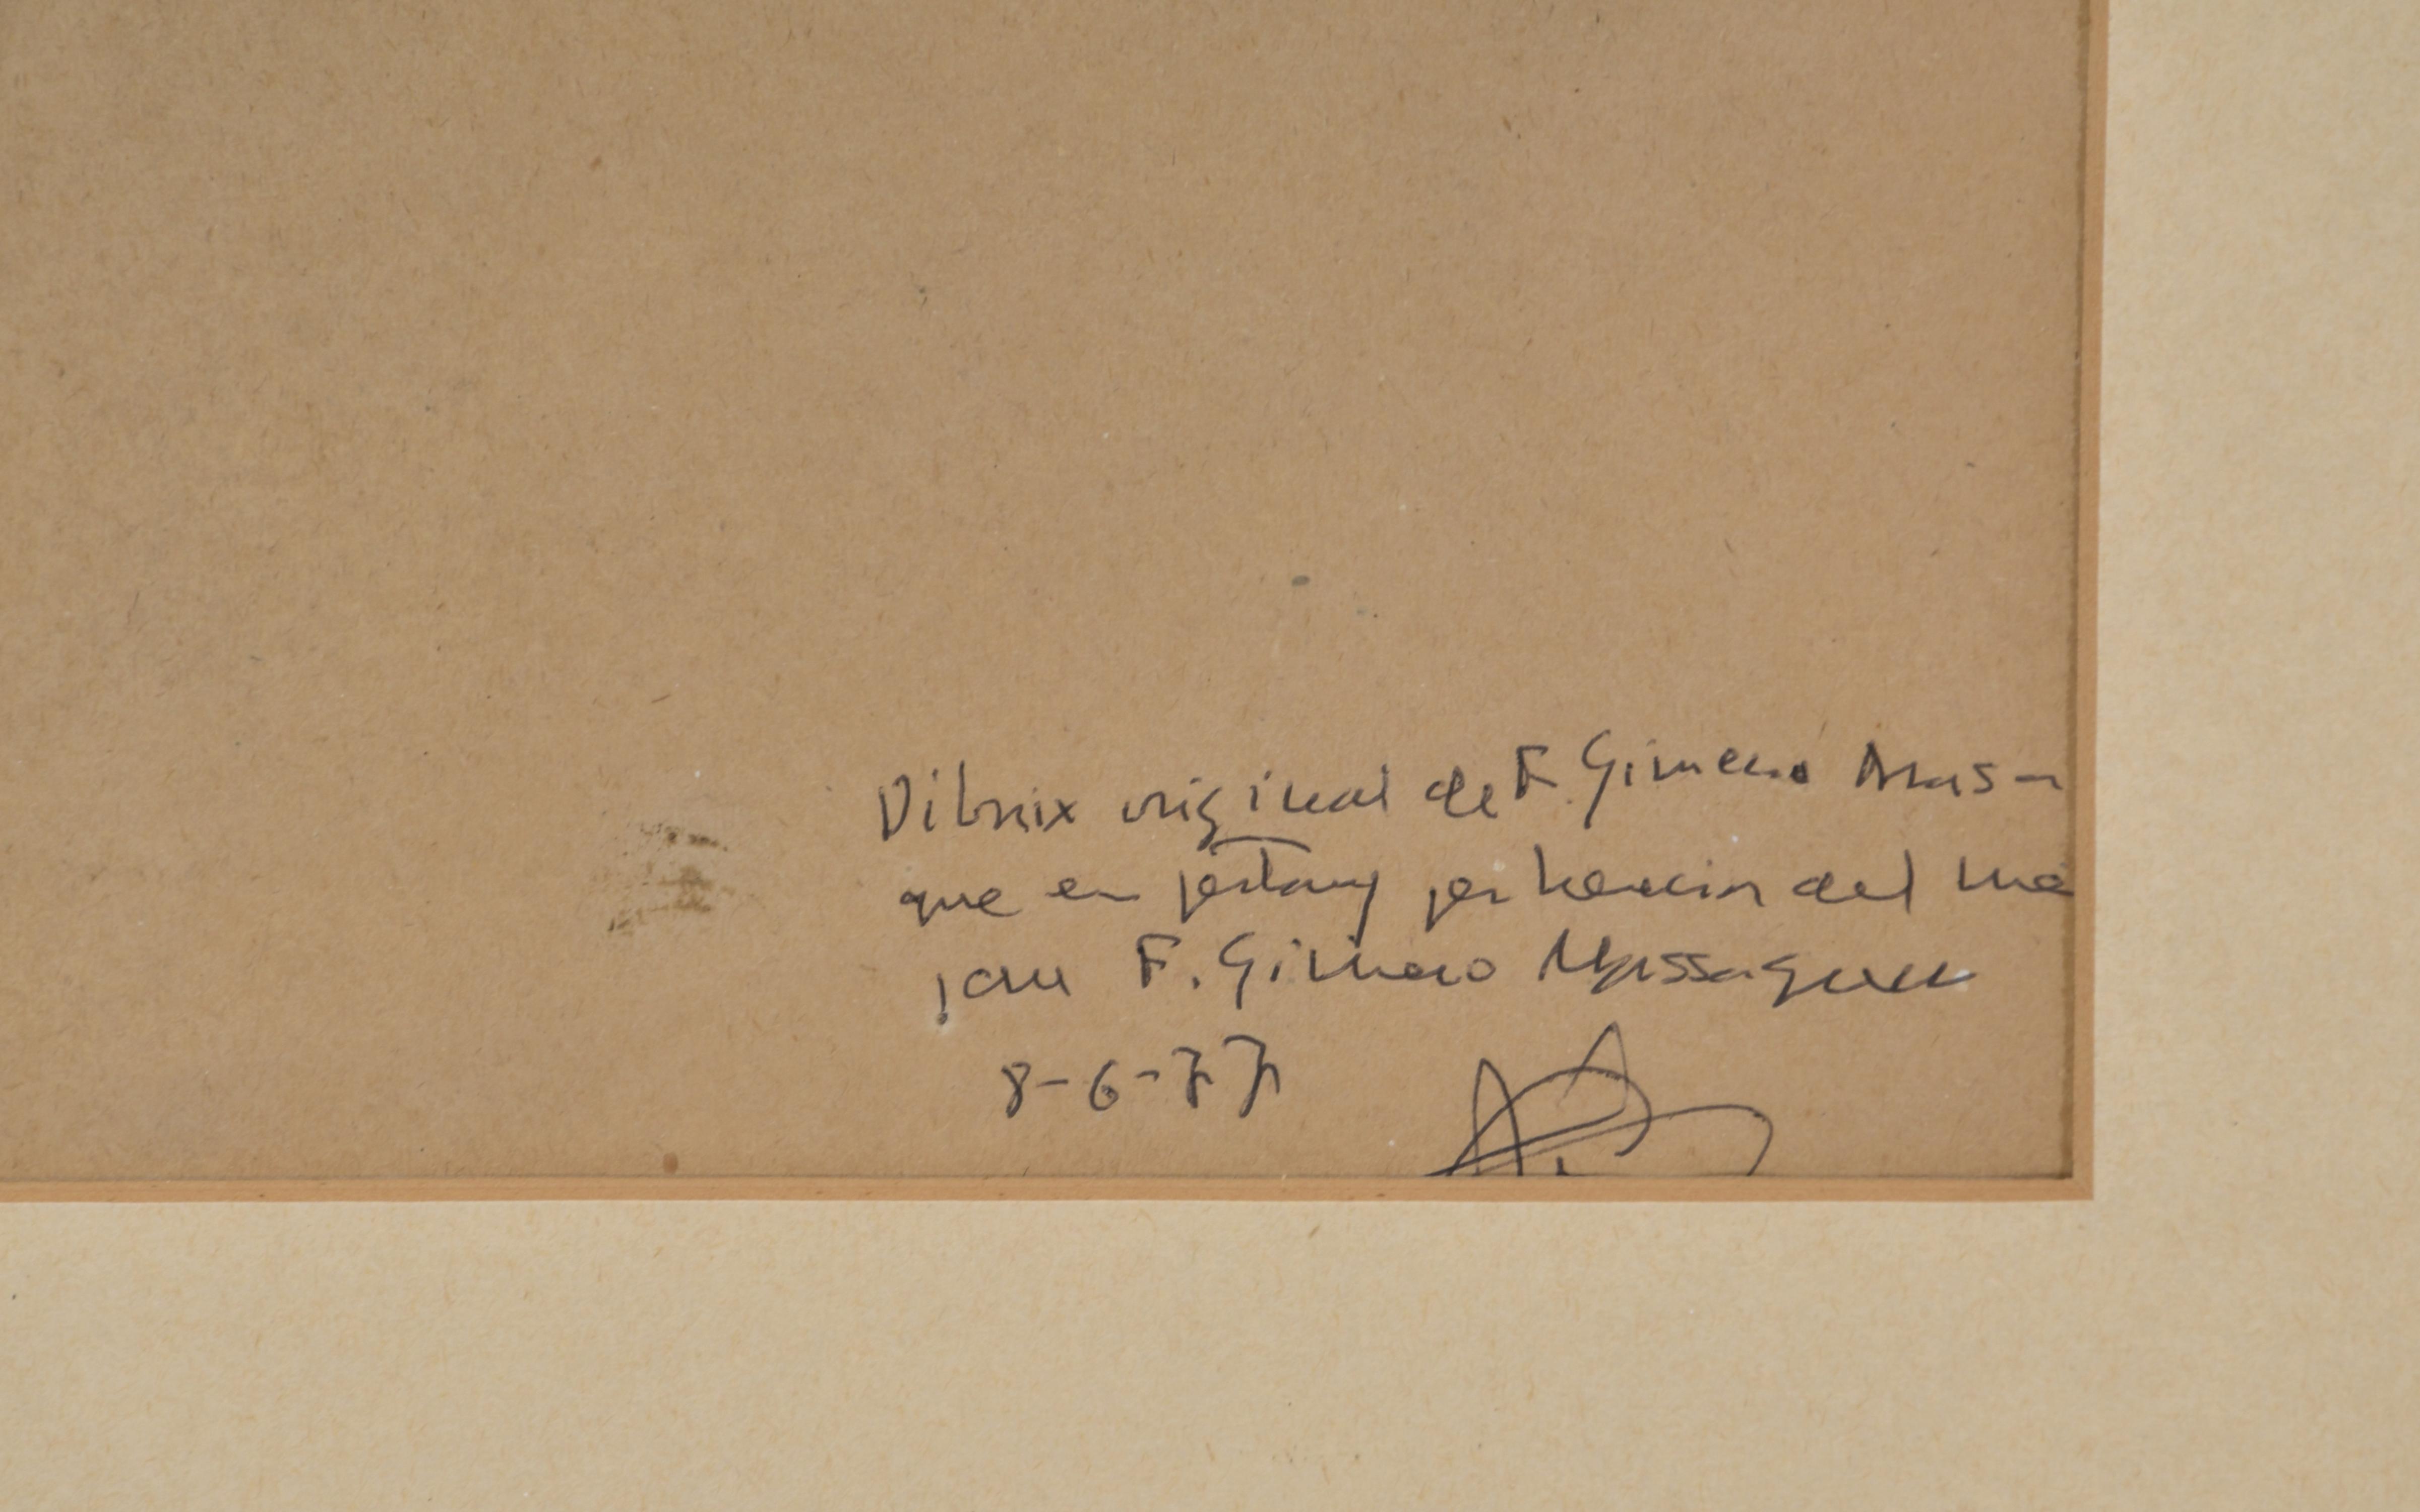 Dibuix original de F. Gimeno Aras-
que em pertany per herencia del meu
pare F. Gimeno Massaguer
8-6-77